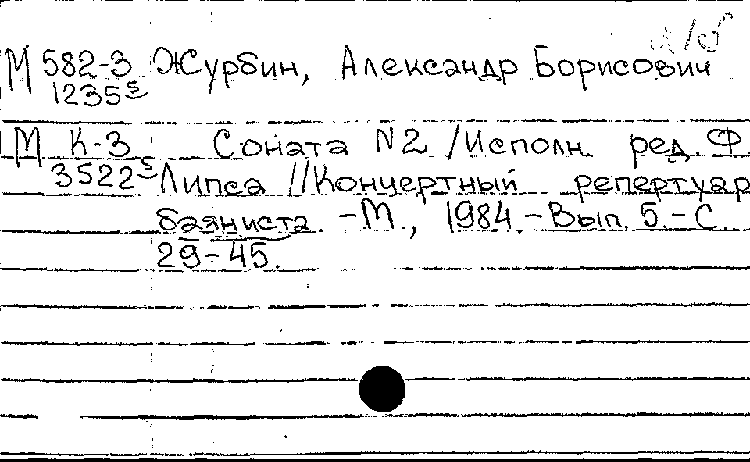 М 582-3 Журбин, Александр Борисович
1235 s
М К-3 Соната N2 /Исполн. ред. Ф.
3522 s Липса //Концертный репертуар
баяниста. -М., 1984.-Вып. 5.-С.
29-45.